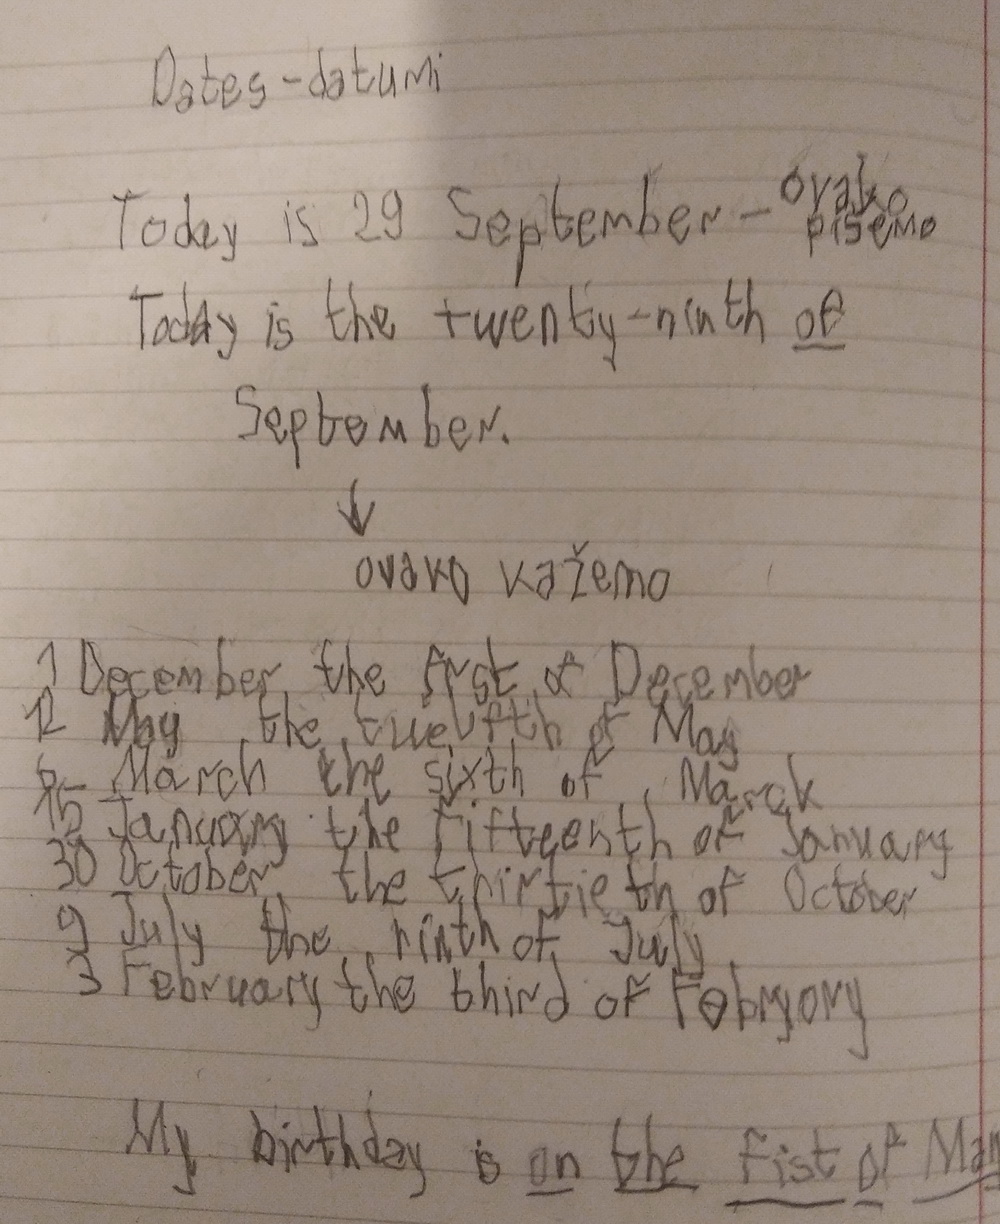 Dates-datumi
Today is 29 September - ovako pišemo
Today is the twenty-ninth of
September.
↓
ovako kažemo
1 December the first of December
12 May the twelfth of May
March the sixth of March
15 January the fifteenth of January
30 October the thirtieth of October
9 July the ninth of July
3 February the third of Febryory
My birthday is on the fist of